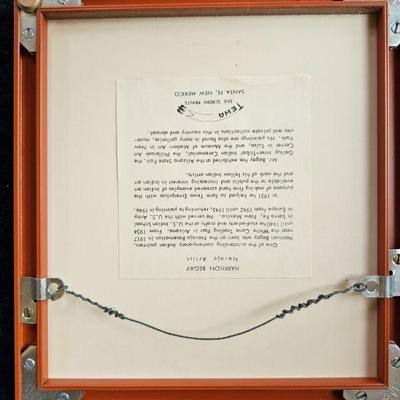 HARRISON BEGAY
Navajo Artist
One of the outstanding contemporary Indian painters,
Harrison Begay was born on the Navajo Reservation in 1917
near the White Cone Trading Post in Arizona. From 1934
until 1940 he studied arts and crafts at the U.S. Indian School
in Santa Fe, New Mexico. He served with the U.S. Army
in Europe from 1942 until 1945, returning to painting in 1946.
In 1951 he helped to form Tewa Enterprises with the
purpose of making fine hand screened examples of Indian art
available to the public and increasing interest in Indian art
and the work of his fellow Indian artists.
Mr. Begay has exhibited at the Arizona State Fair, the
Gallup Inter-Tribal Indian Ceremonial, the Philbrook Art
Center in Tulsa, and the Museum of Modern Art in New
York. His paintings are also found in many galleries, muse-
ums and private collections in this country and abroad.
TEWA
SILK SCREEN PRINTS
SANTA FE, NEW MEXICO